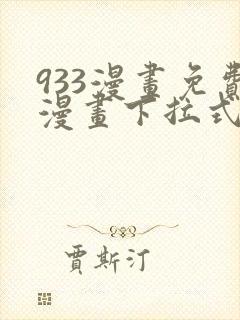 933漫畫免費
漫畫下拉式
賈斯汀